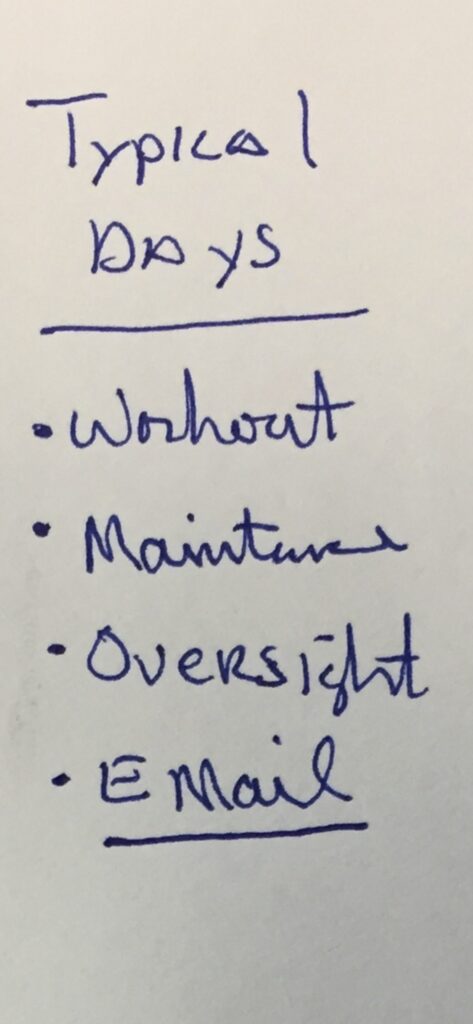 Typical
Days
• Workout
• Maintenance
• Oversight
• EMail